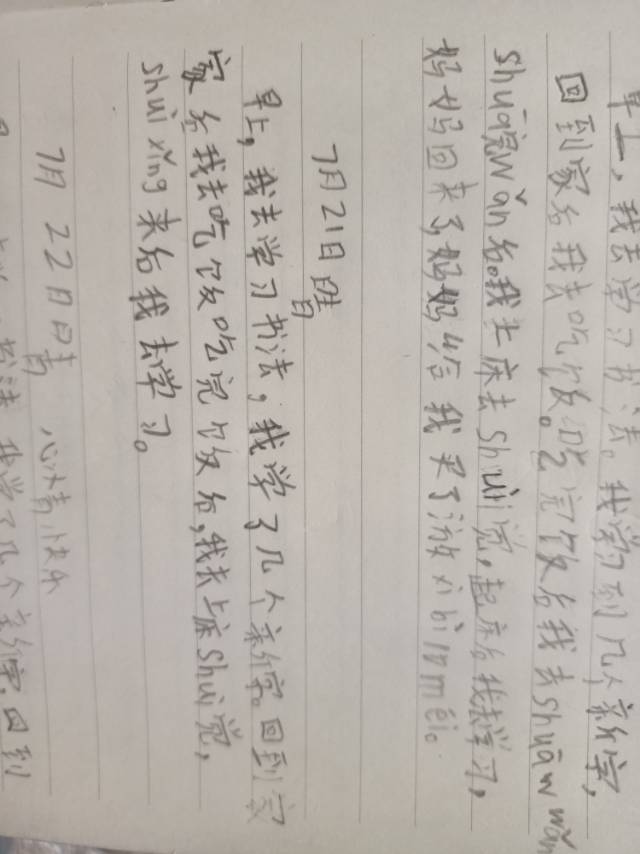 早上，我去学习书法。我学到几个亲行字，
回到家后我去吃饭。吃完饭后我去shuāw wǎn
shuā完wǎn后。我上床去shuì觉，起床后我去学习，
妈妈回来了，妈妈给我买了 bīn méi。
7月21日 晴
早上，我去学习书法，我学了几个亲行字。回到家
家后我去吃饭吃完饭后，我去上床shuì觉，
shuì xǐng来后我去学习。
7月22日 晴 心情快乐
书法 我学了几个亲行字。回到